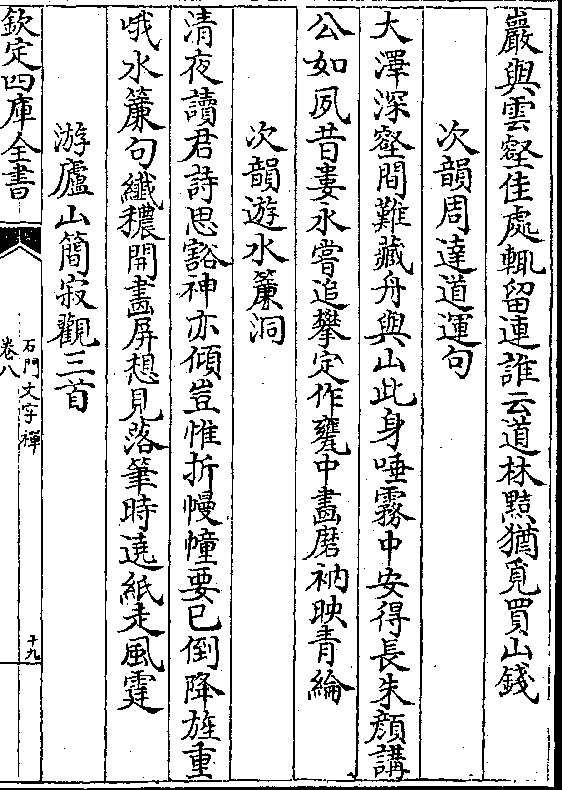 巖與雲壑佳處輙留連誰云道林黠猶覓買山錢
次韻周達道運句
大澤深壑間難藏舟與山此身唾霧中安得長朱顔講
公如夙昔妻永嘗追攀定作甕中畵磨衲映青綸
次韻遊水簾洞
清夜讀君詩思豁神亦傾豈惟折幔幢要已倒降旌重
哦水簾句纖穠開畵屏想見落筆時遶紙走風霆
游廬山簡寂觀三首
欽定四庫全書
石門文字禪
卷八
十九